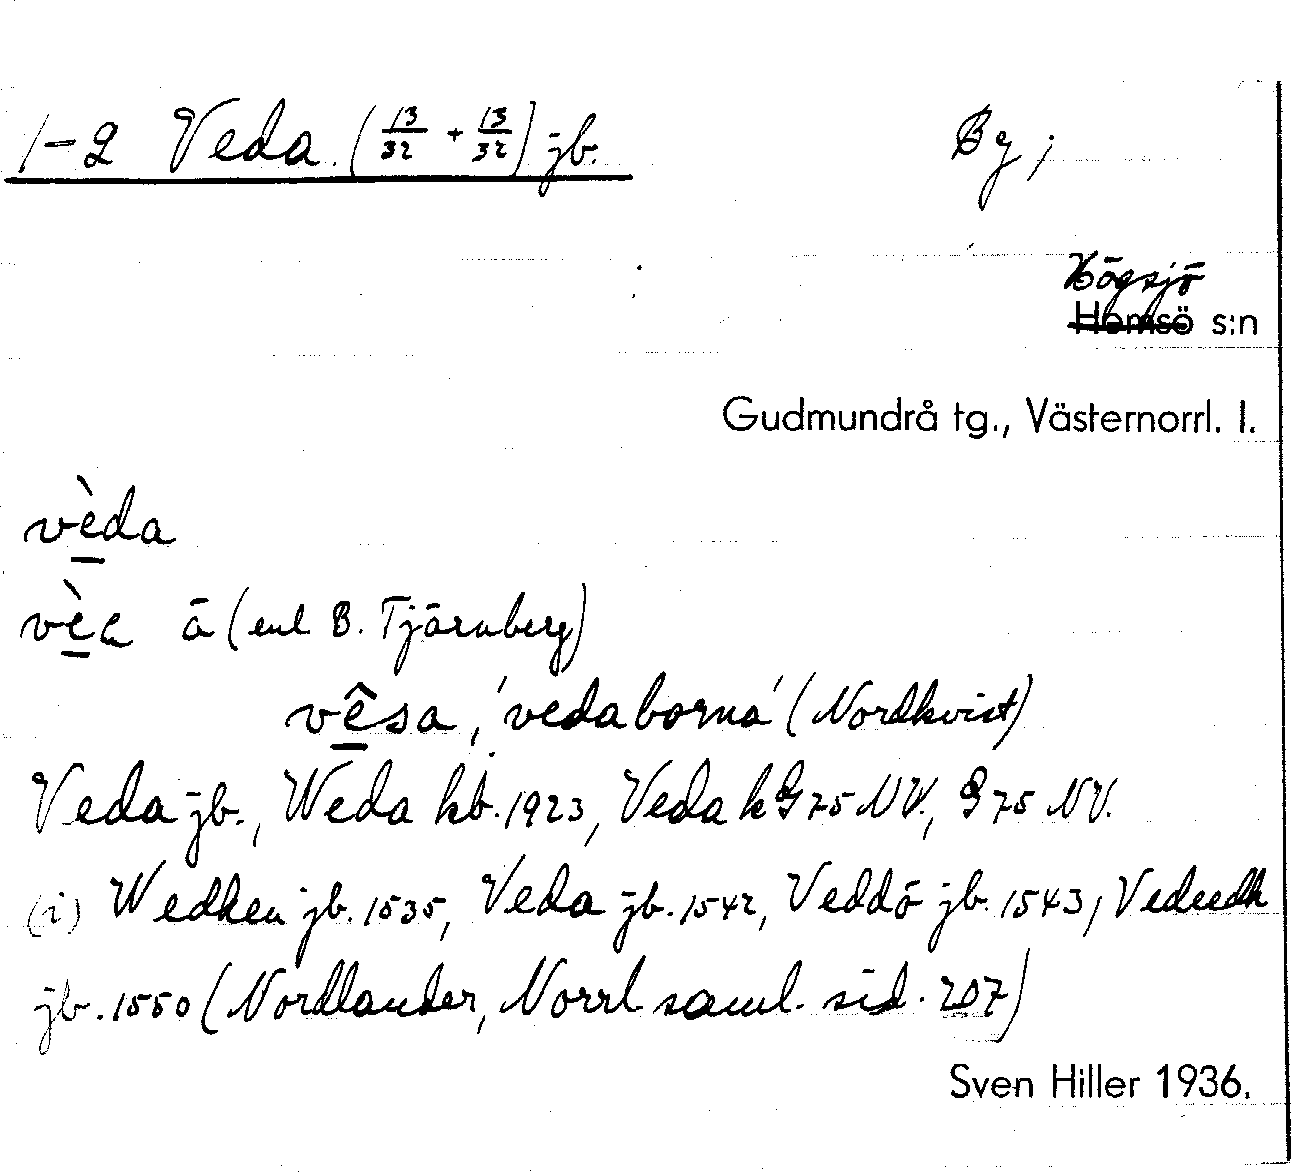 1-2 Veda. (13/32 + 13/32) jb. By;
Högsjö
Hemsö s:n
Gudmundrå tg., Västernorrl. l.
vèda
vèa å (enl B. Tjärnberg)
vêsa, 'vedaborna' (Nordkvist)
Veda jb., Weda kb. 1923, Veda k G 75 NV., G 75 NV.
(i) Wedhen jb. 1535, Veda jb. 1542, Veddö jb. 1543,
jb. 1550 (Nordlander, Norrl saml. sid. 207)
Sven Hiller 1936.